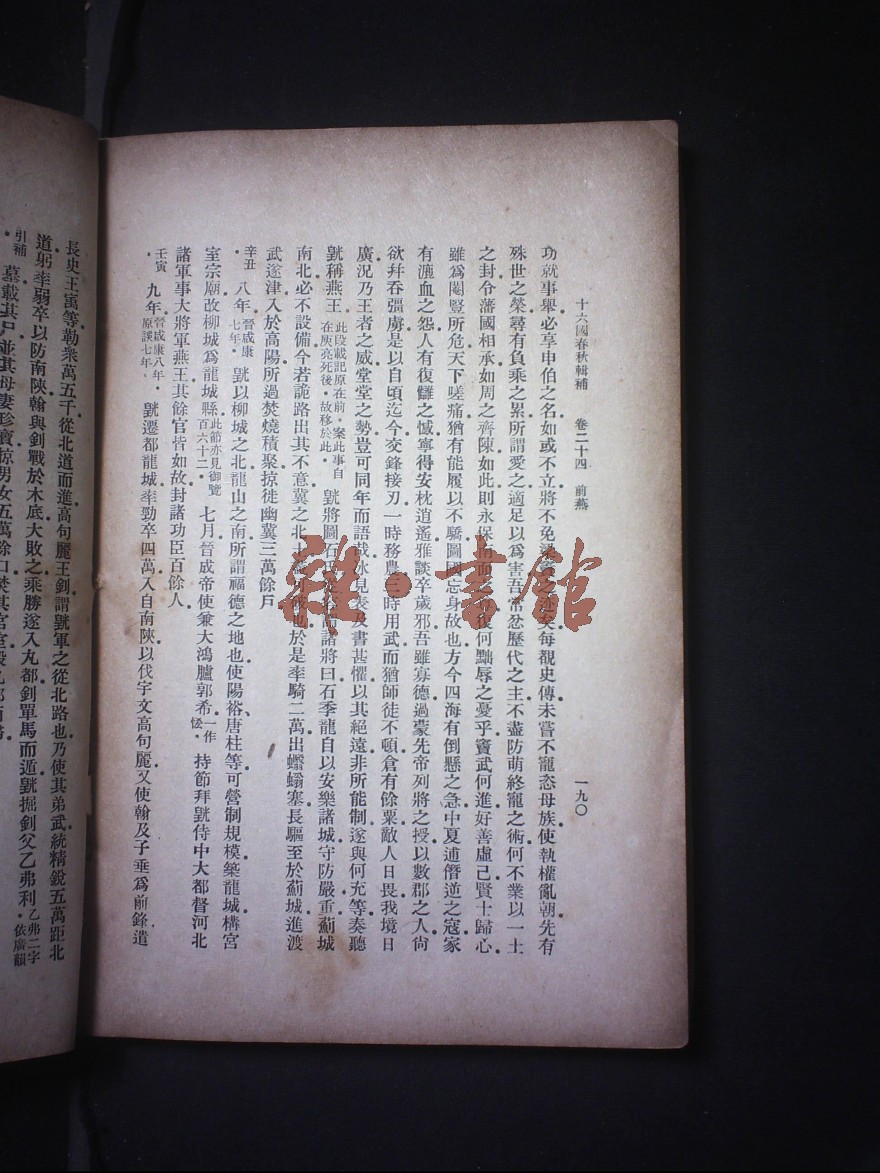 十六國春秋輯補 卷二十四 前燕 一九〇
功就事舉必享申伯之名如或不立將不免梁竇之迹矣每覩史傳未嘗不寵恣母族使執權亂朝先有
殊世之榮尋有負乘之累所謂愛之適足以爲害吾常忿歷代之主不盡防萌終寵之術何不業以一土
之封令藩國相承如周之齊陳如此則永保南面之尊復何黜辱之憂乎竇武何進好善虛己賢士歸心
雖爲閹豎所危天下嗟痛猶有能履以不驕圖國忘身故也方今四海有倒懸之急中夏逋僭逆之寇家
有漉血之怨人有復讎之憾寧得安枕逍遙雅談卒歲邪吾雖寡德過蒙先帝列將之授以數郡之人尙
欲幷吞彊虜是以自頃迄今交鋒接刃一時務農三時用武而猶師徒不頓倉有餘粟敵人日畏我境日
廣況乃王者之威堂堂之勢豈可同年而語哉冰見表及書甚懼以其絕遠非所能制遂與何充等奏聽
皝稱燕王此段載記原在前案此事自在庾亮死後故移於此 皝將圖石氏從容謂諸將曰石季龍自以安樂諸城守防嚴重薊城
南北必不設備今若詭路出其不意冀之北土盡可破也於是率騎二萬出蠮螉塞長驅至於薊城進渡
武遂津入於高陽所過焚燒積聚掠徙幽冀三萬餘戶
辛丑 八年晉咸康七年 皝以柳城之北龍山之南所謂福德之地也使陽裕唐柱等可營制規模築龍城構宮
室宗廟改柳城爲龍城縣此節亦見御覽百六十二 七月晉成帝使兼大鴻臚郭希一作悕 持節拜皝侍中大都督河北
諸軍事大將軍燕王其餘官皆如故封諸功臣百餘人
壬寅 九年晉咸康八年原誤七年 皝遷都龍城率勁卒四萬入自南陝以伐宇文高句麗又使翰及子垂爲前鋒遣
長史王㝢等勒衆萬五千從北道而進高句麗王釗謂皝軍之從北路也乃使其弟武統精銳五萬距北
道躬率弱卒以防南陝翰與釗戰於木底大敗之乘勝遂入丸都釗單馬而遁皝掘釗父乙弗利乙弗二字依廣韻
引補 墓載其尸並其母妻珍寶掠男女五萬餘口焚其宮室毀丸都而歸
雜·書館